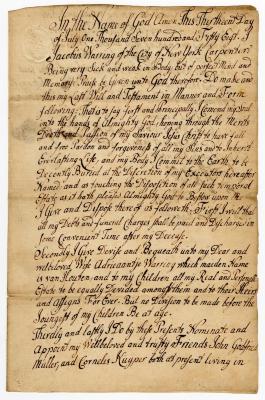 In the Name of God Amen This Thirteenth Day
of July One Thousand Seven hundred and Fifty Eight I
Jacobus Warring of the City of New York Carpenter
Being very Sick and weak in Body but of perfect Mind and
Memory Thanks be Given unto God therefore Do make and
this my Last Will and Testament in Manner and Form
following; That is to say first and Principally I Commend my Soul
into the hands of Almighty God, hoping through the Merits
Death and Passion of my Saviour Jesus Christ to have full
and free Pardon and forgiveness of all my Sins and to Inherit
Everlasting Life and my Body I Commit to the Earth to be
Decently Buried at the Discretion of my Executors hereafter
Named and as touching the Disposition of all such temporal
Estate as it hath pleased Almighty God to Bestow upon Me
I Give and Dispose thereof as followeth, First I will that
all my Debts and funeral Charges shall be paid and Discharged in
Some Convenient Time after my Decease
Secondly I Give Devise and Bequeath unto my Dear and
welbeloved Wife Adreaantje Warring which maiden Name
is van Houten and to my Children all my Real and Personal
Estate to be equally Devided amongst them and to their Heirs
and Assigns For Ever. But no Devision to be made before the
Youngest of my Children Be at age.
Thirdly and lastly I Do by these Presents Nominate and
Appoint my Wellbeloved and trusty Friends John Godfried
Muller, and Cornelis Kuyper both at present living in